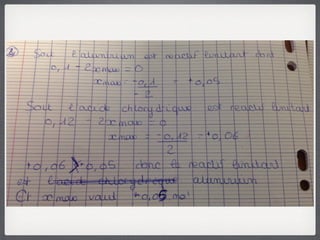 2) Soit l'aluminium est reactif limitant donc
0,1 - 2xmax = 0
xmax = -0,1 / -2 = +0,05
Soit l'acide chlorydrique est reactif limitant
0,12 - 2xmax = 0
xmax = -0,12 / 2 = +0,06
+0,06 > +0,05 donc le reactif limitant
est l'acide chlorydrique aluminium
Et xmax vaut +0,05 mol